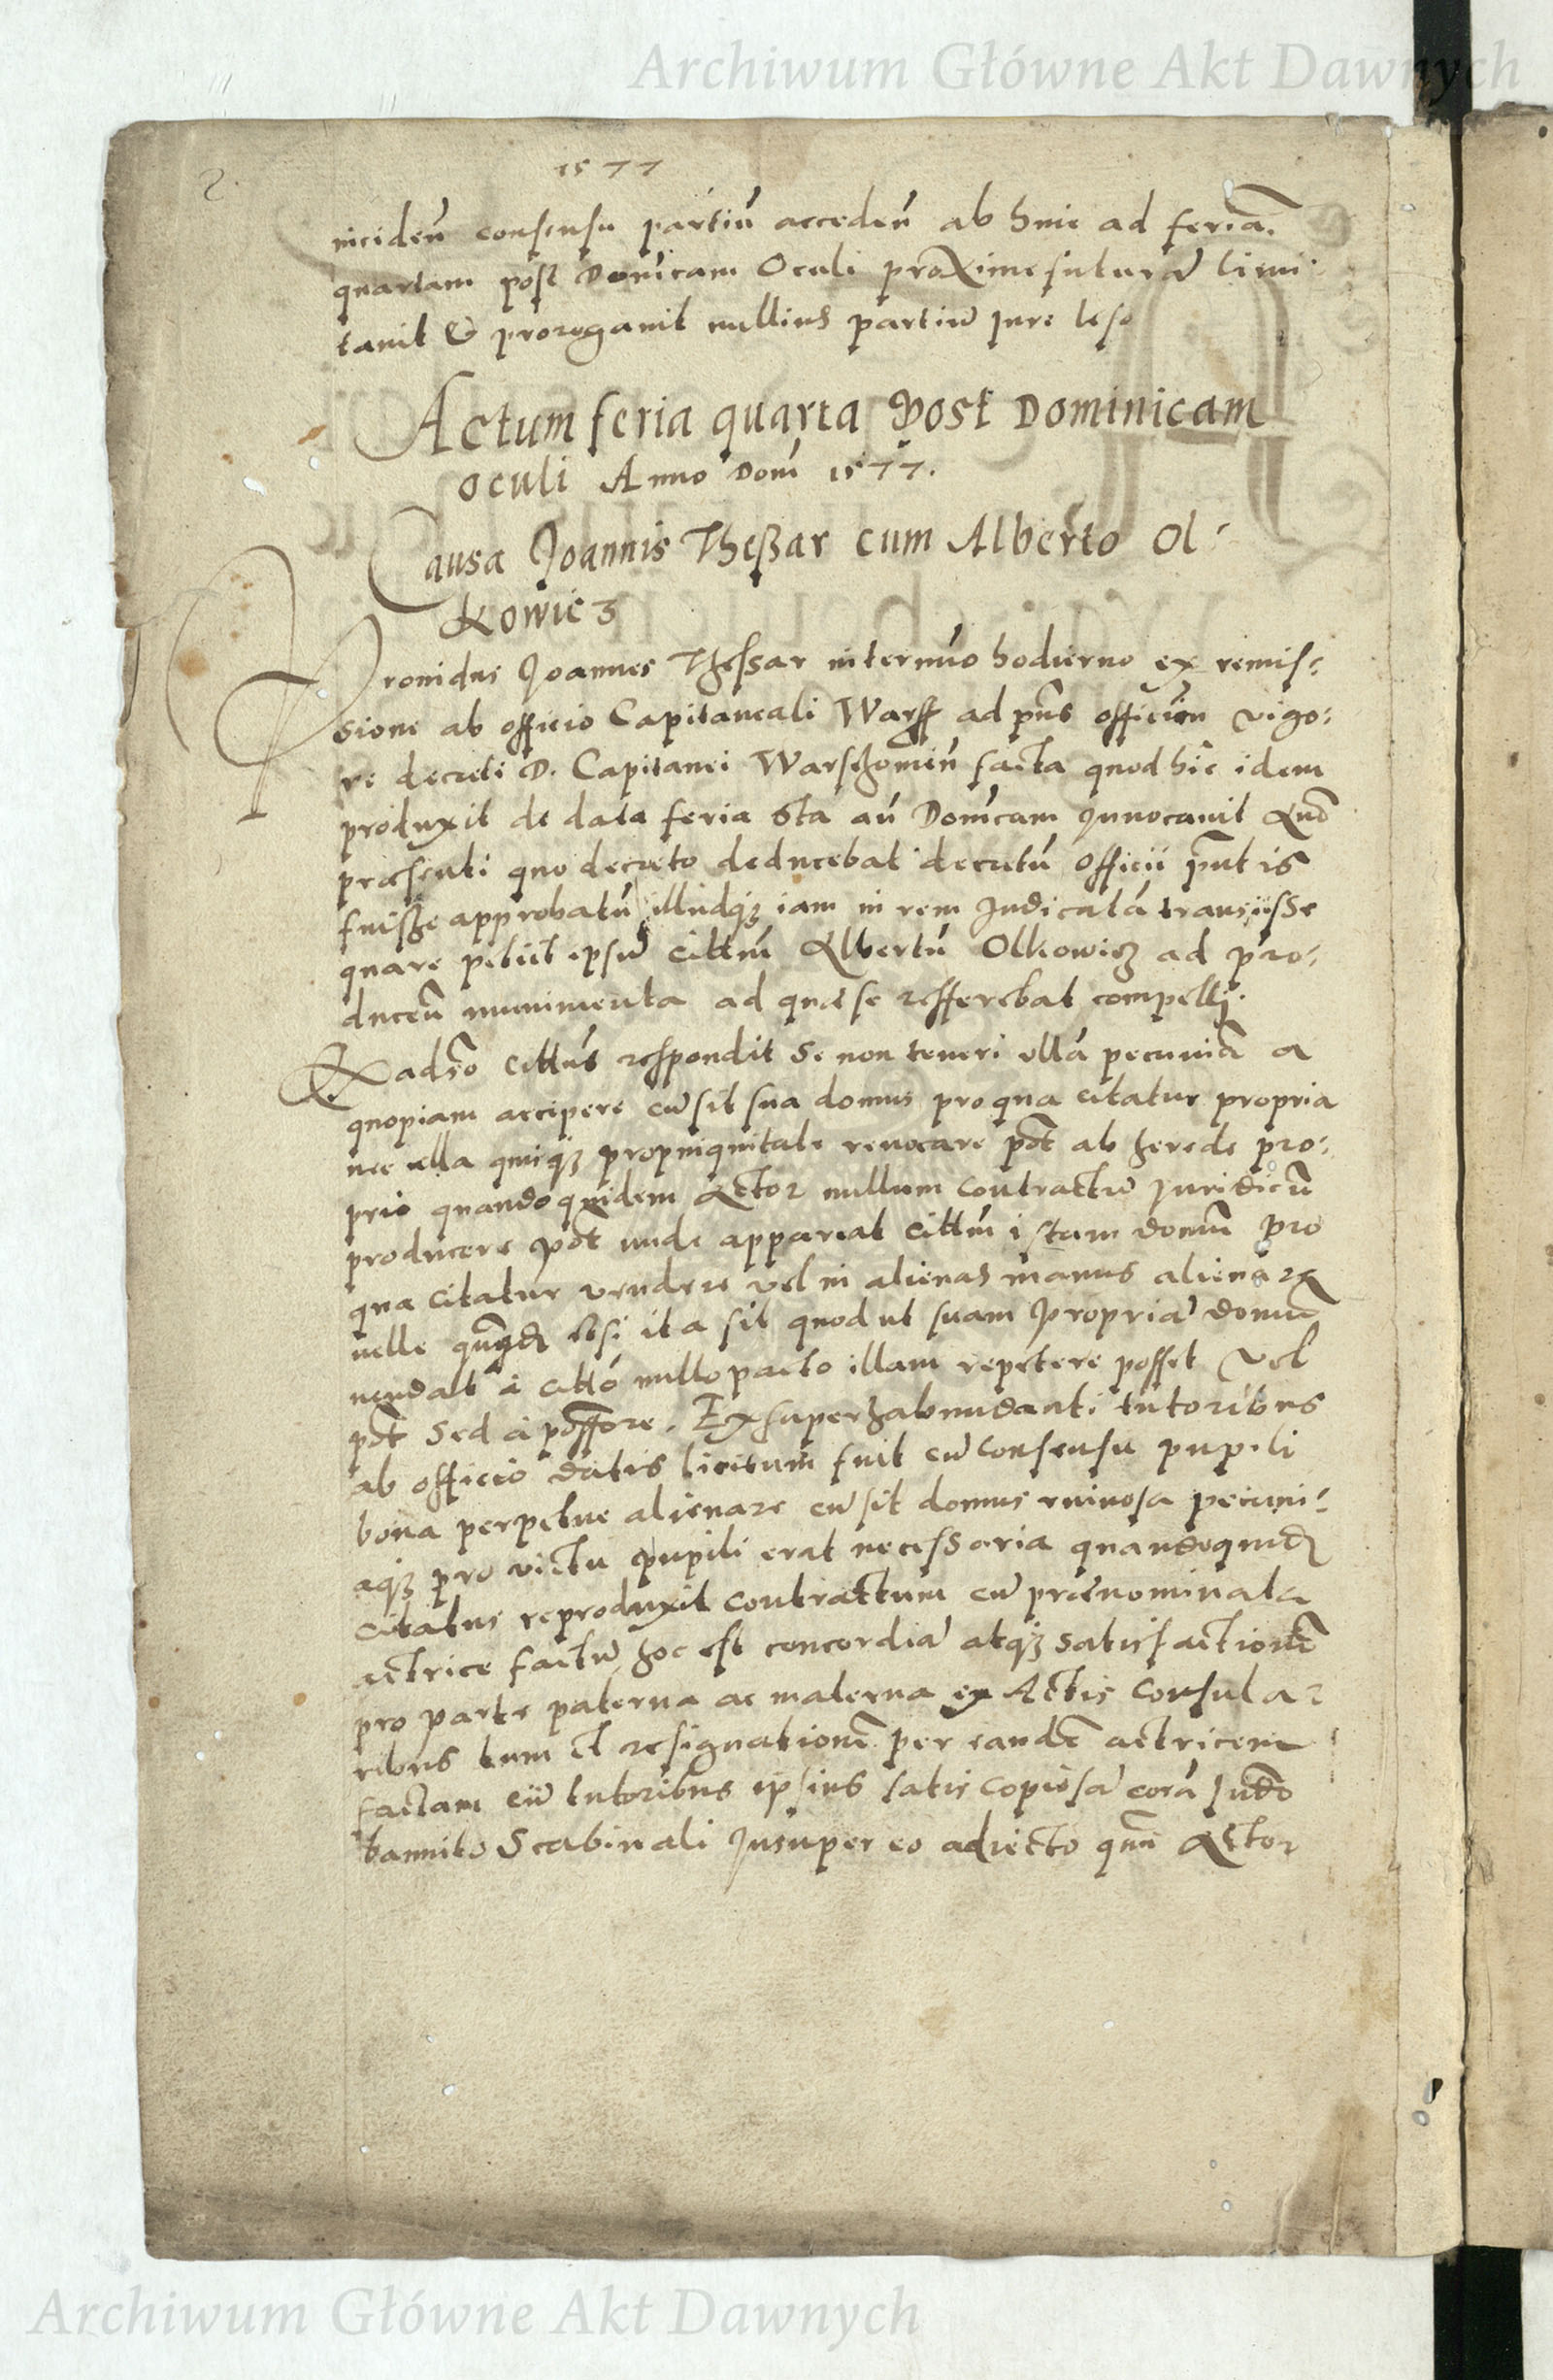 Archiwum Główne Akt Dawnych
2.
1577
inciden̄ consensu partiū acceden̄ ab hinc ad feriā
quartam post Domīcam Oculi proxime futurā limi-
tavit & prorogavit nullius partiū jure leso
Actum feria quarta Post Dominicam
oculi Anno Dom̄ 1577.
Causa Joannis Theßar cum Alberto Ol-
kowicz
Providus Joannes Thessar in termīo hodierno ex remis-
sione ab officio Capitaneali Warss ad pn̄s officiū vigo-
re decreti D. Capitanei Warschowien̄ facta quod hic idem
produxit de data feria 6ta an̄ Domīcam Invocavit Quo
præsenti quo decreto deducebat decretū officii put is
fuisse approbatū illudq3 iam in rem Iudicatā transijsse
quare petiit ipsū cittm̄ Albertū Olkowicz ad pro-
ducen̄ munimenta ad quæ se refferebat compelli.
Ex adv̄so citt̄us respondit se non teneri ullā pecuniā a
quopiam accipere cū sit sua domus pro qua citatur propria
nec ulla quisq3 propinquitate revocare pot̄ ab herede pro-
prio quandoquidem Actor nullum contractū Iuridicū
producere pot̄ unde appareat cittm̄ istam domū pro
qua citatur vendere vel in alienas manus alienare
velle etsi ita sit quod ut suam propriā domū
vendat à citto nullo pacto illam repetere posset vel
pot̄ sed à possore. Ex superhabundanti tutoribus
ab officio datis licitum fuit cū consensu pupili
bona perpetue alienare cū sit domus ruinosa pecuni-
aq3 pro victu pupili erat necessaria quandoquidē
citatus reproduxit contractum cū prænominata
actrice factū hoc est concordiā atq3 satisfactionē
pro parte paterna ac materna ex Actis Consula-
ribus tum et resignationē per eandē actricem
factam cū tutoribus ipsius satis copiosā corā Iudō
bannito Scabinali Insuper eo adiecto qm̄ Actor
Archiwum Główne Akt Dawnych